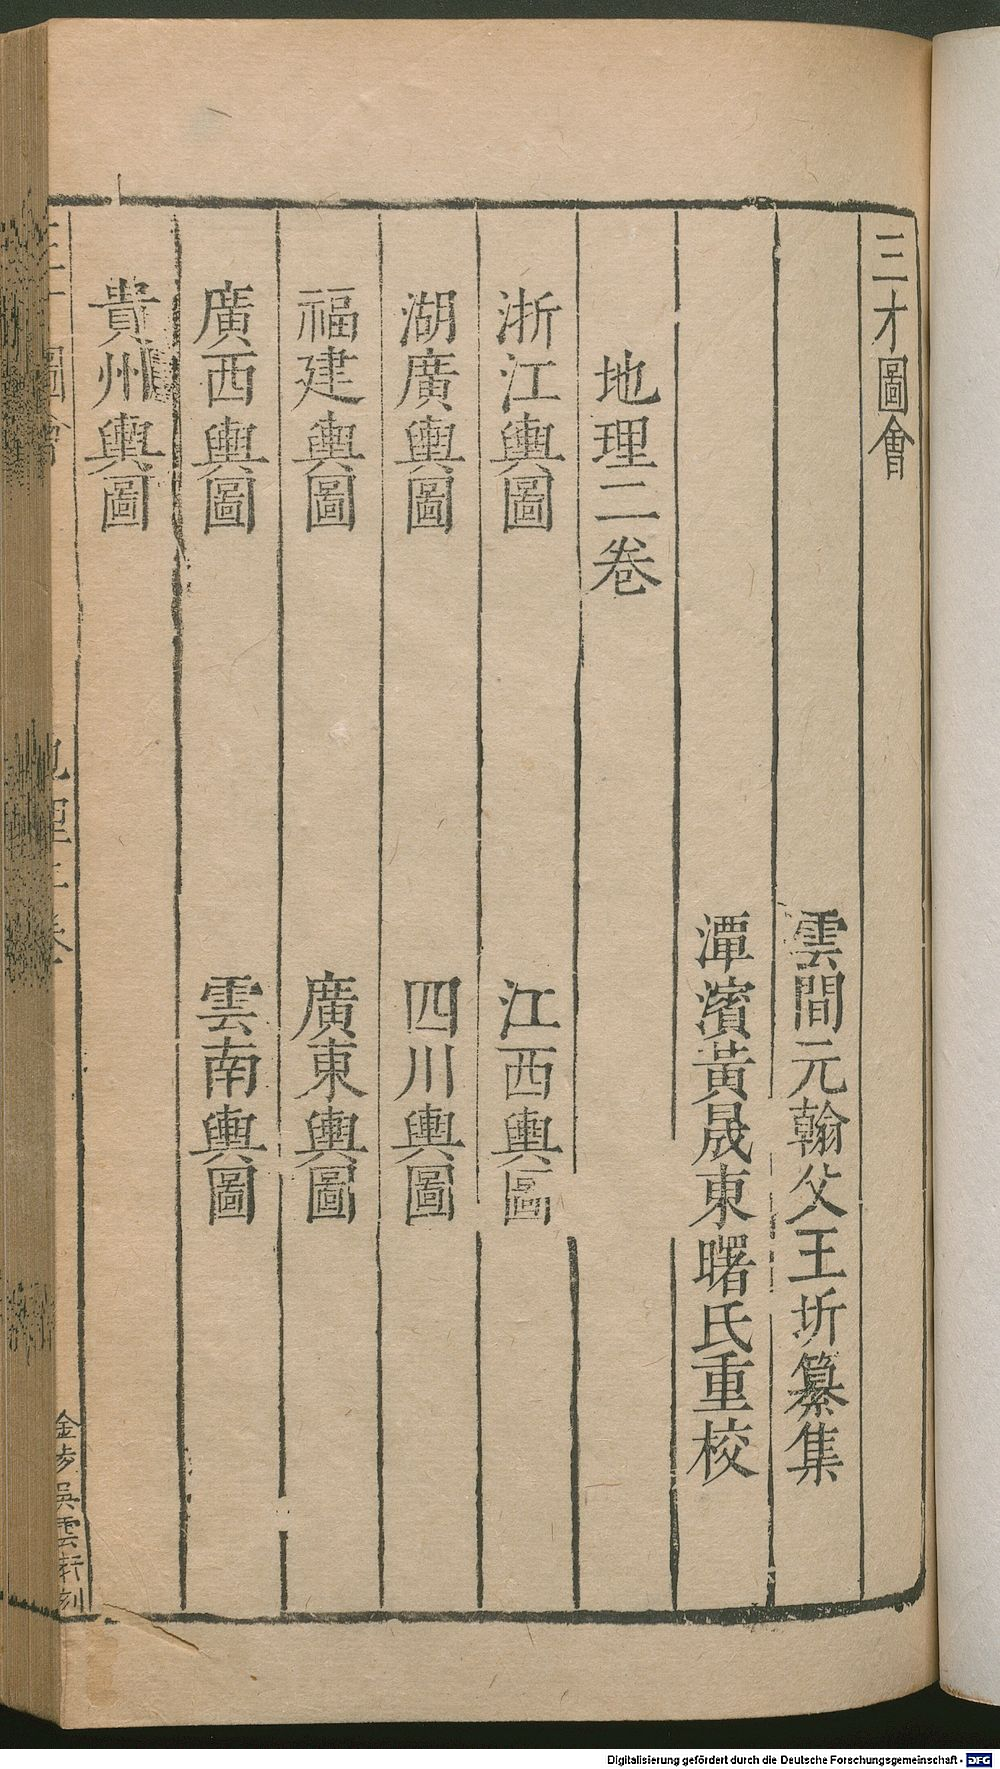 三才圖會
雲間元翰父王圻纂集
潭濱黃晟東曙氏重校
地理二卷
浙江輿圖　江西輿圖
湖廣輿圖　四川輿圖
福建輿圖　廣東輿圖
廣西輿圖　雲南輿圖
貴州輿圖
圖會
理
卷
金陵吳雲軒刻
Digitalisierung gefördert durch die Deutsche Forschungsgemeinschaft - DFG